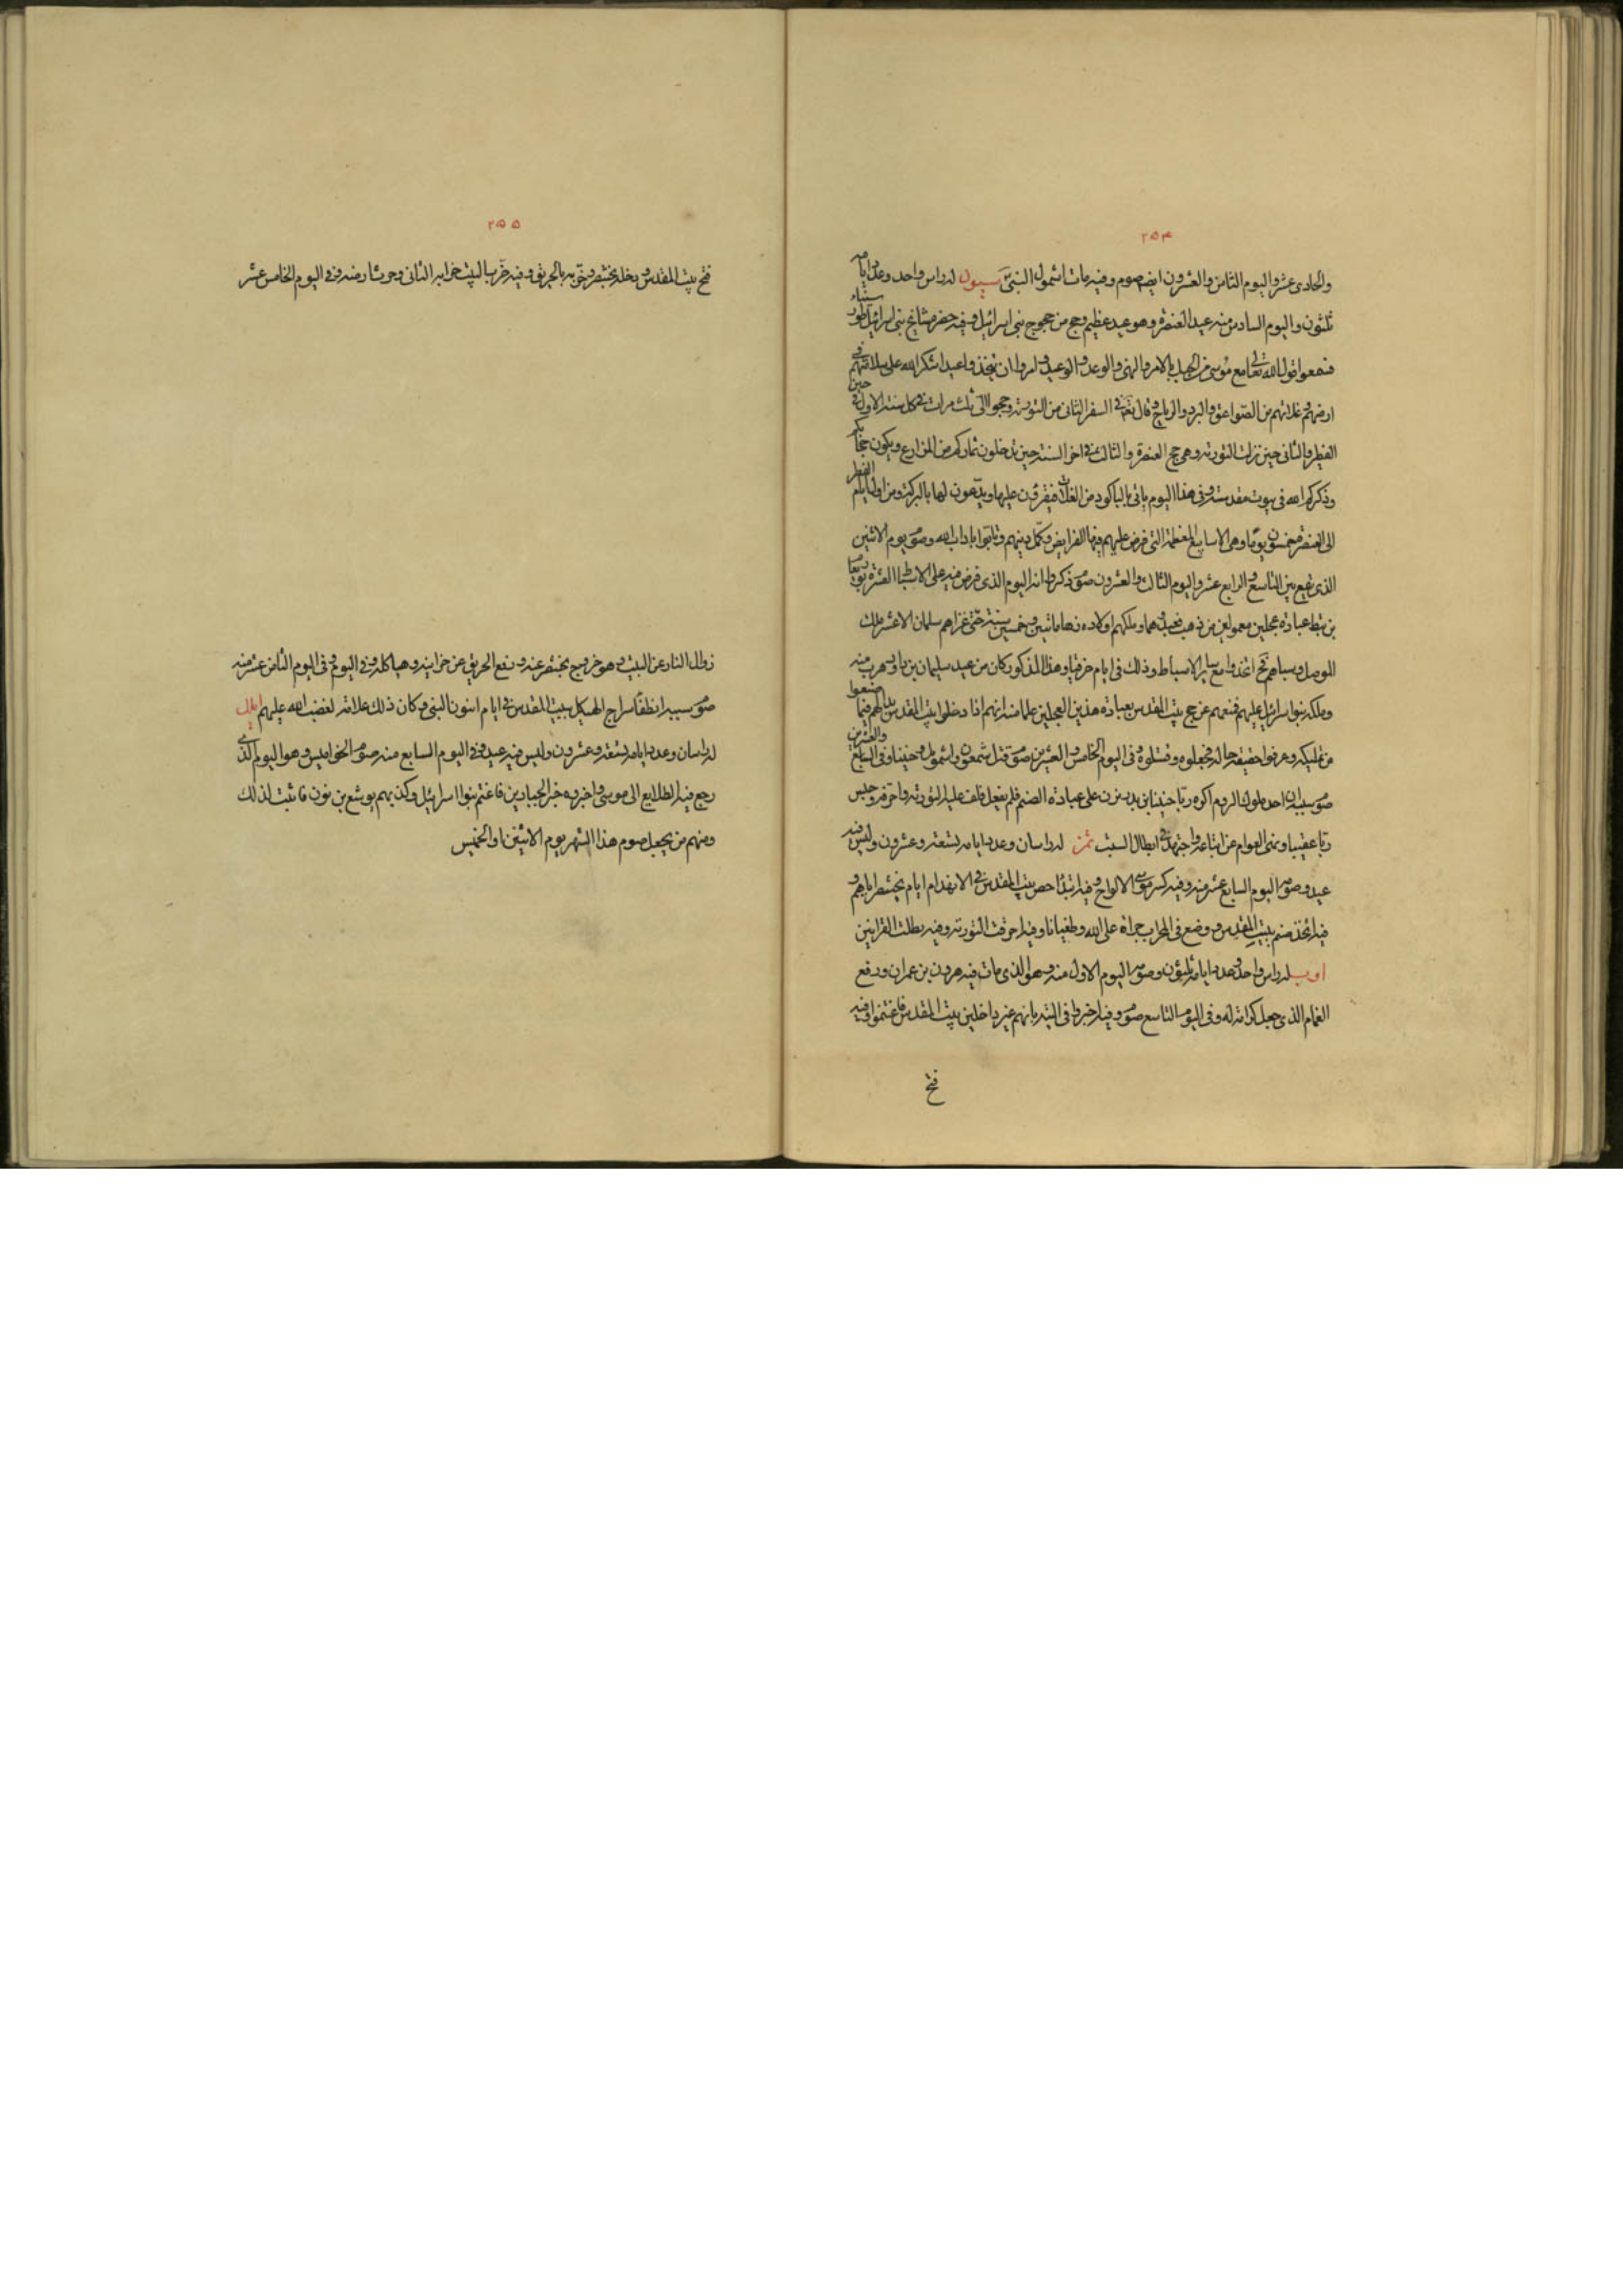 ٢٥٤
والحادى عشر واليوم الثامن والعشرون ايض صوم وفيه مات اشمول النبىّ سيون له راس واحد وعدد ايامه
ثلثون واليوم السادس منه عيد العنصرة وهو عيد عظيم وحج من حجوج بنى اسرائيل وفيه حضر مشايخ بنى اسرائيل طور سيناء
فسمعوا قول الله تعالى مع موسى من الجبل بالامر والنهى والوعد والوعيد وامروا ان يتخذوا عيدا شكرا لله على سلامتهم فى
ارضهم وغلاتهم من الصواعق والبرد والرياح وقال تعالى فى السفر الثانى من التورية وحجوا الىّ ثلث مرات فى كل سنة الاول فى حين
الفطير والثانى حين نزلت التورية وهى حج العنصرة والثالث فى اخر السنة حين تدخلون ثماركم من المزارع ويكون حجابكم
وذكركم الله فى بيوت مقدسة وفى هذا اليوم ياتى بالباكور من الغلات فيقرؤن عليها ويدعون لها بالبركة ومن اول ايام الفطر
الى العنصرة خمسون يوما وهى الاسابيع المعظمة التى فرض عليهم فيها الفرايض وكمل دينهم وتادبوا باداب الله وصوم يوم الاثنين
الذى يقع بين التاسع والرابع عشر واليوم الثالث والعشرون صوم ذكروا انه اليوم الذى فرض فيه على الاسباط العشرة يوربعام
بن نبط عبادة عجلين معمولين من ذهب فعبدوهما وملكهم اولاده زها ماتين وخمسين سنة حتى غزاهم سلمان الاعشر ملك
الموصل وسباهم فح اتخذوا مع ساير الاسباط وذلك فى ايام حزقيا وهذا المذكور كان من عبيد سليمان بن داود هرب منه
وملكه بنوا اسرائيل عليهم فمنعهم عن حج بيت المقدس بعبادة هذين العجلين علما منه انهم اذا دخلوا بيت المقدس بدا لهم فيما صنعوا
من تمليكه وعرفوا حقيقة حاله فخلعوه وقتلوه وفى اليوم الخامس والعشرين صوم قتل شمعون واشمويل وحنينا وفى السابع والعشرين
صوم سببه ان احد ملوك الروم اكره ربا حنينا بن يديترن على عبادة الصنم فلم يفعل فلف عليه التورية واحرقه وحبس
ربا عقيبا ونهى العوام عن اتباعه واجتهد فى ابطال السبت تمز له راسان وعدد ايامه تسعة وعشرون وليس فيه
عيد وصوم اليوم السابع عشر منه وفيه كسر موسى الالواح وفيه ابتدأ حصن بيت المقدس فى الانهدام ايام بختنصر اياهم و
فيه اتخذ صنم ببيت المقدس ووضع فى المحراب جراة على الله وطغيانا وفيه احرقت التورية وفيه بطلت القرابين
اوب له راس واحد وعدد ايامه ثلثون وصوم اليوم الاول منه وهو الذى مات فيه هرون بن عمران ودفع
الغمام الذى جعل كرامة له وفى اليوم التاسع صوم وفيه اخبروا فى التيه بانهم غير داخلين بيت المقدس فاغتموا وفيه
فتح
٢٥٥
فتح بيت المقدس ودخله بختنصر وخربه بالحريق وفيه خرب البيت خرابه الثانى وحرثت ارضه وفى اليوم الخامس عشر
زوال النار عن البيت وهو خروج بختنصر عنه ودفع الحريق عن خزاينه وهياكله وفى اليوم وفى اليوم الثامن عشر منه
صوم سببه انطفا سراج الهيكل ببيت المقدس فى ايام انون النبى وكان ذلك علامة لغضب الله عليهم ايلل
له راسان وعدد ايامه تسعة وعشرون وليس فيه عيد وفى اليوم السابع منه صوم الخواميس وهو اليوم الذى
رجع فيه الطلايع الى موسى واخبروه خبر الجبارين فاغتم بنوا اسرائيل وكذبهم يوشع بن نون فاثبت لذلك
ومنهم من يجعل صوم هذا الشهر يوم الاثنين او الخميس